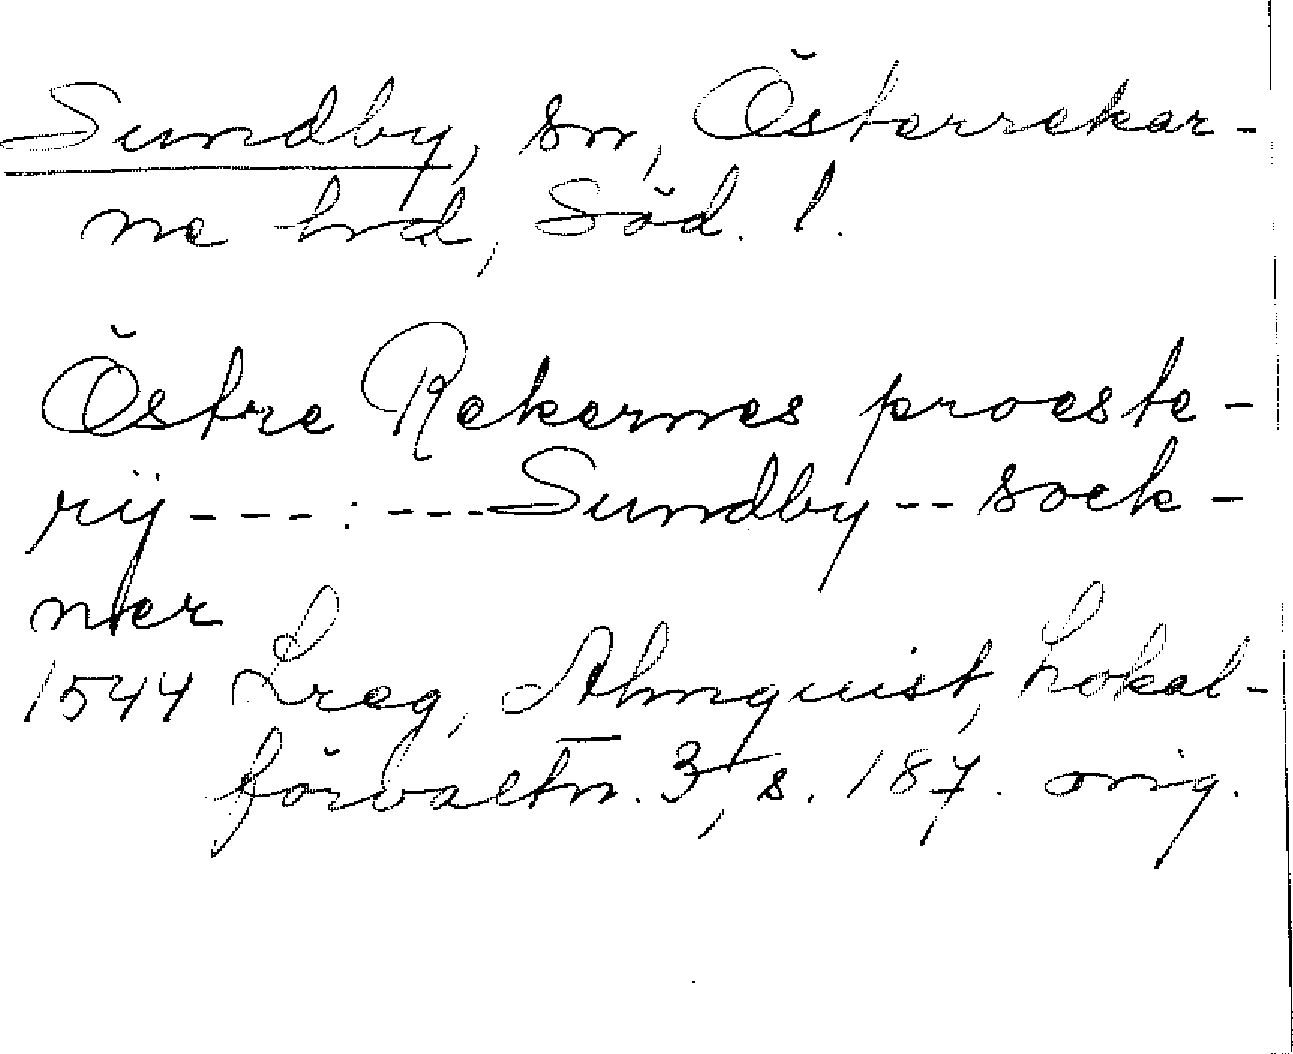 Sundby, sn, Österrekar-
ne hrd, Söd. l.
Östre Rekernes proeste-
rij ---:--- Sundby -- sock-
ner
1544 Lreg, Almquist, Lokal-
förvaltn. 3, s. 187. orig.